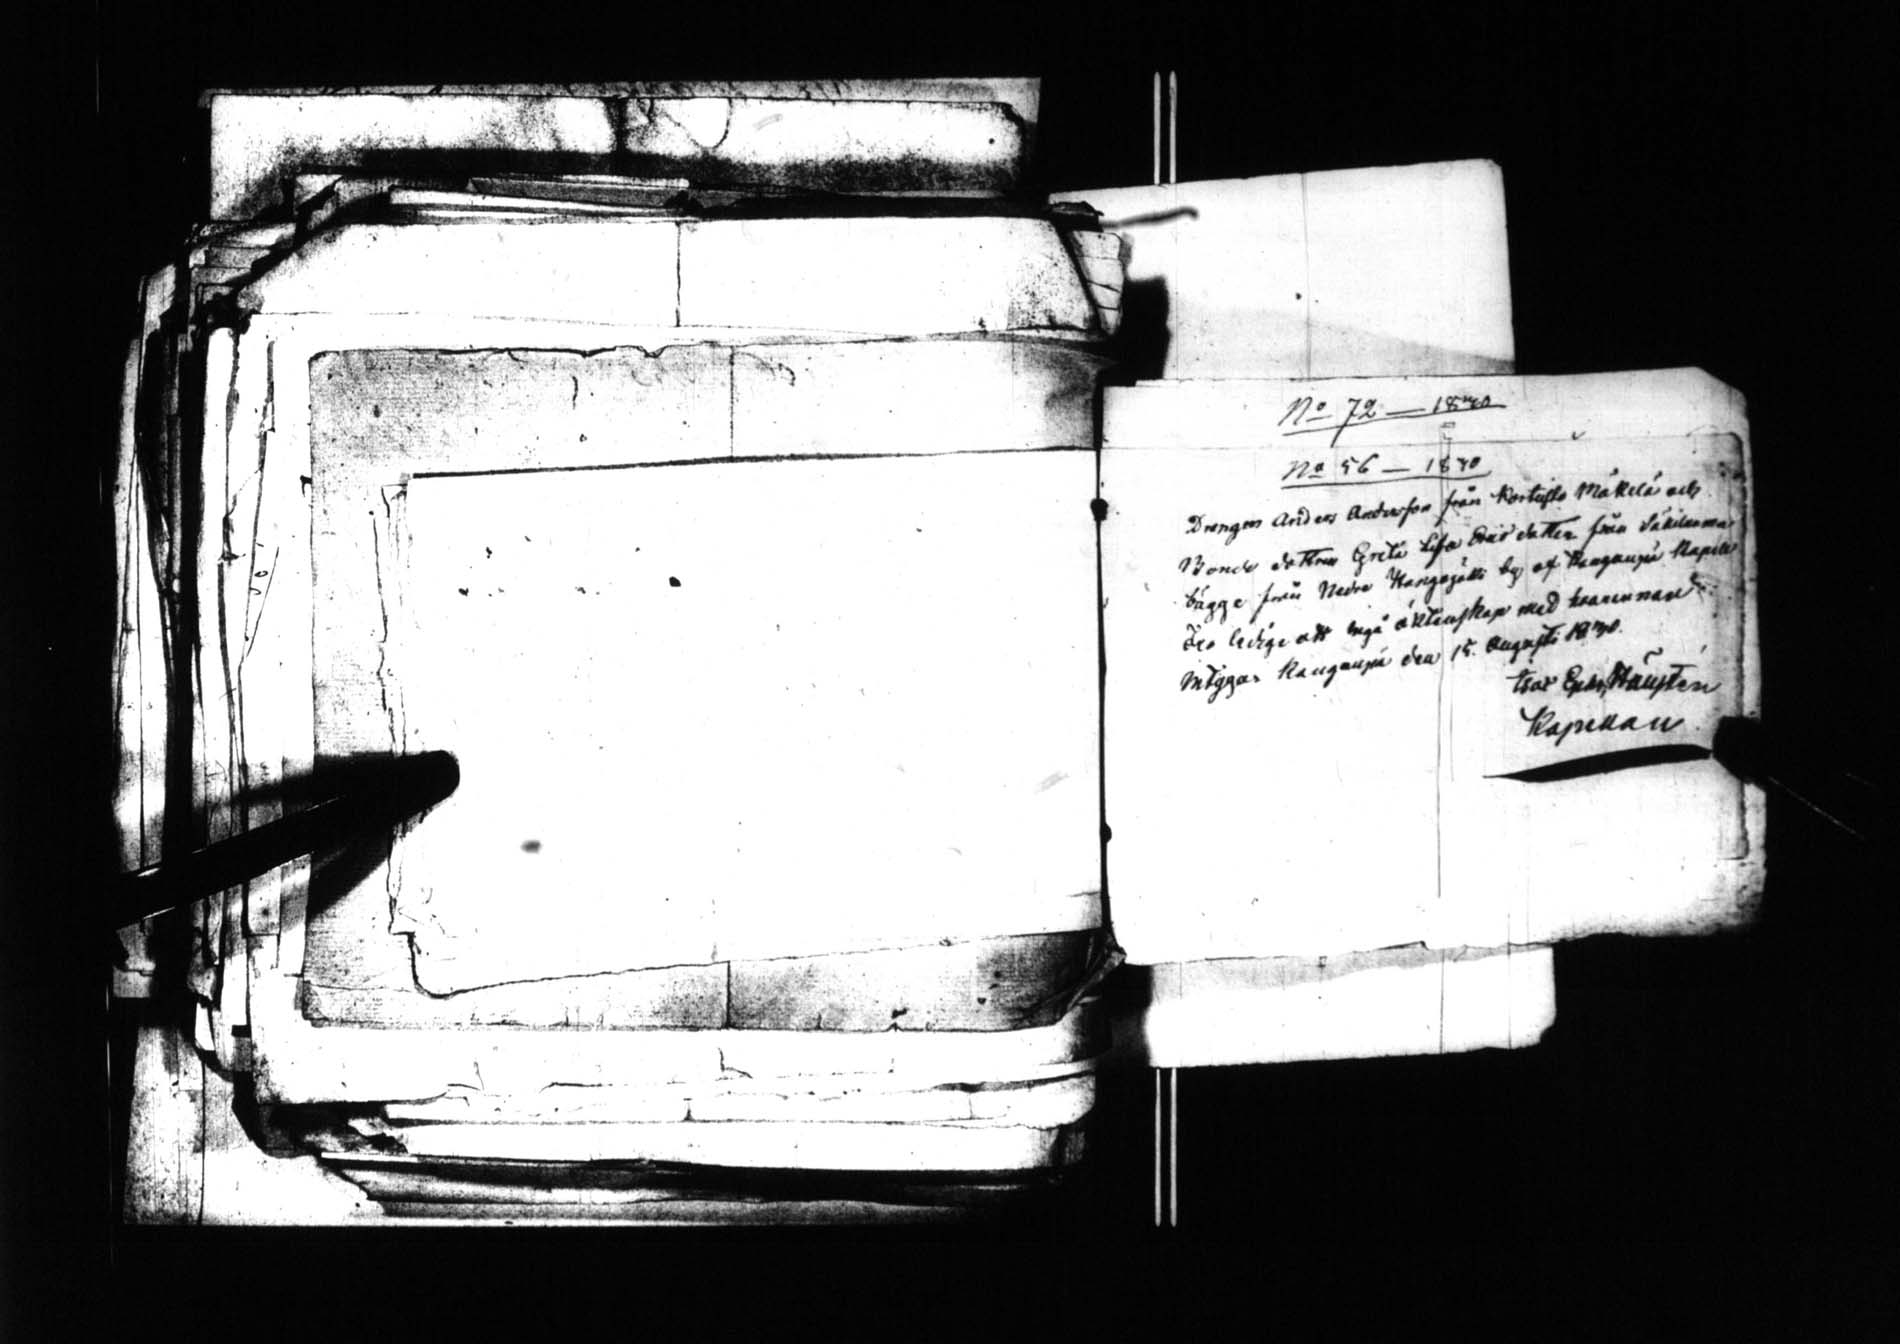 No 72 — 1840
No 56 — 1840
Drengen Anders Andersson från Kortesto Mäkelä och
Bonde dottren Greta Lisa Ersdotter från
bägge från Nedre by af Kauganpä Kapell
äro ledige att ingå äktenskap med hvarannan
intygar Kauganpä den 15 Augusti 1840.
Kapellan